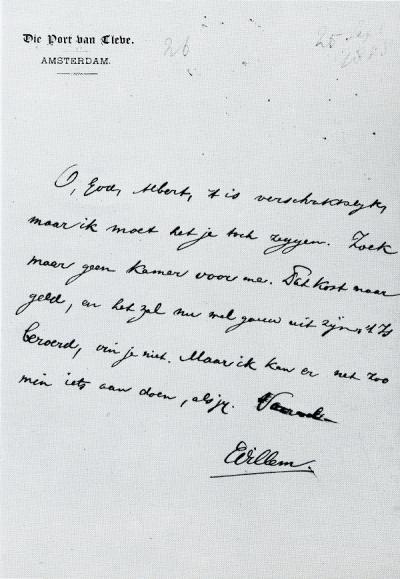 Die Port van Cleve.
AMSTERDAM.
26
25
O, God, Albert, 't is verschrikkelijk,
maar ik moet het je toch zeggen. Zoek
maar geen kamer voor me. Dat kost maar
geld, en het zal nu wel gauw uit zijn. 't Is
beroerd, vin je niet. Maar ik kan er net zoo
min iets aan doen, als jy.
Willem.